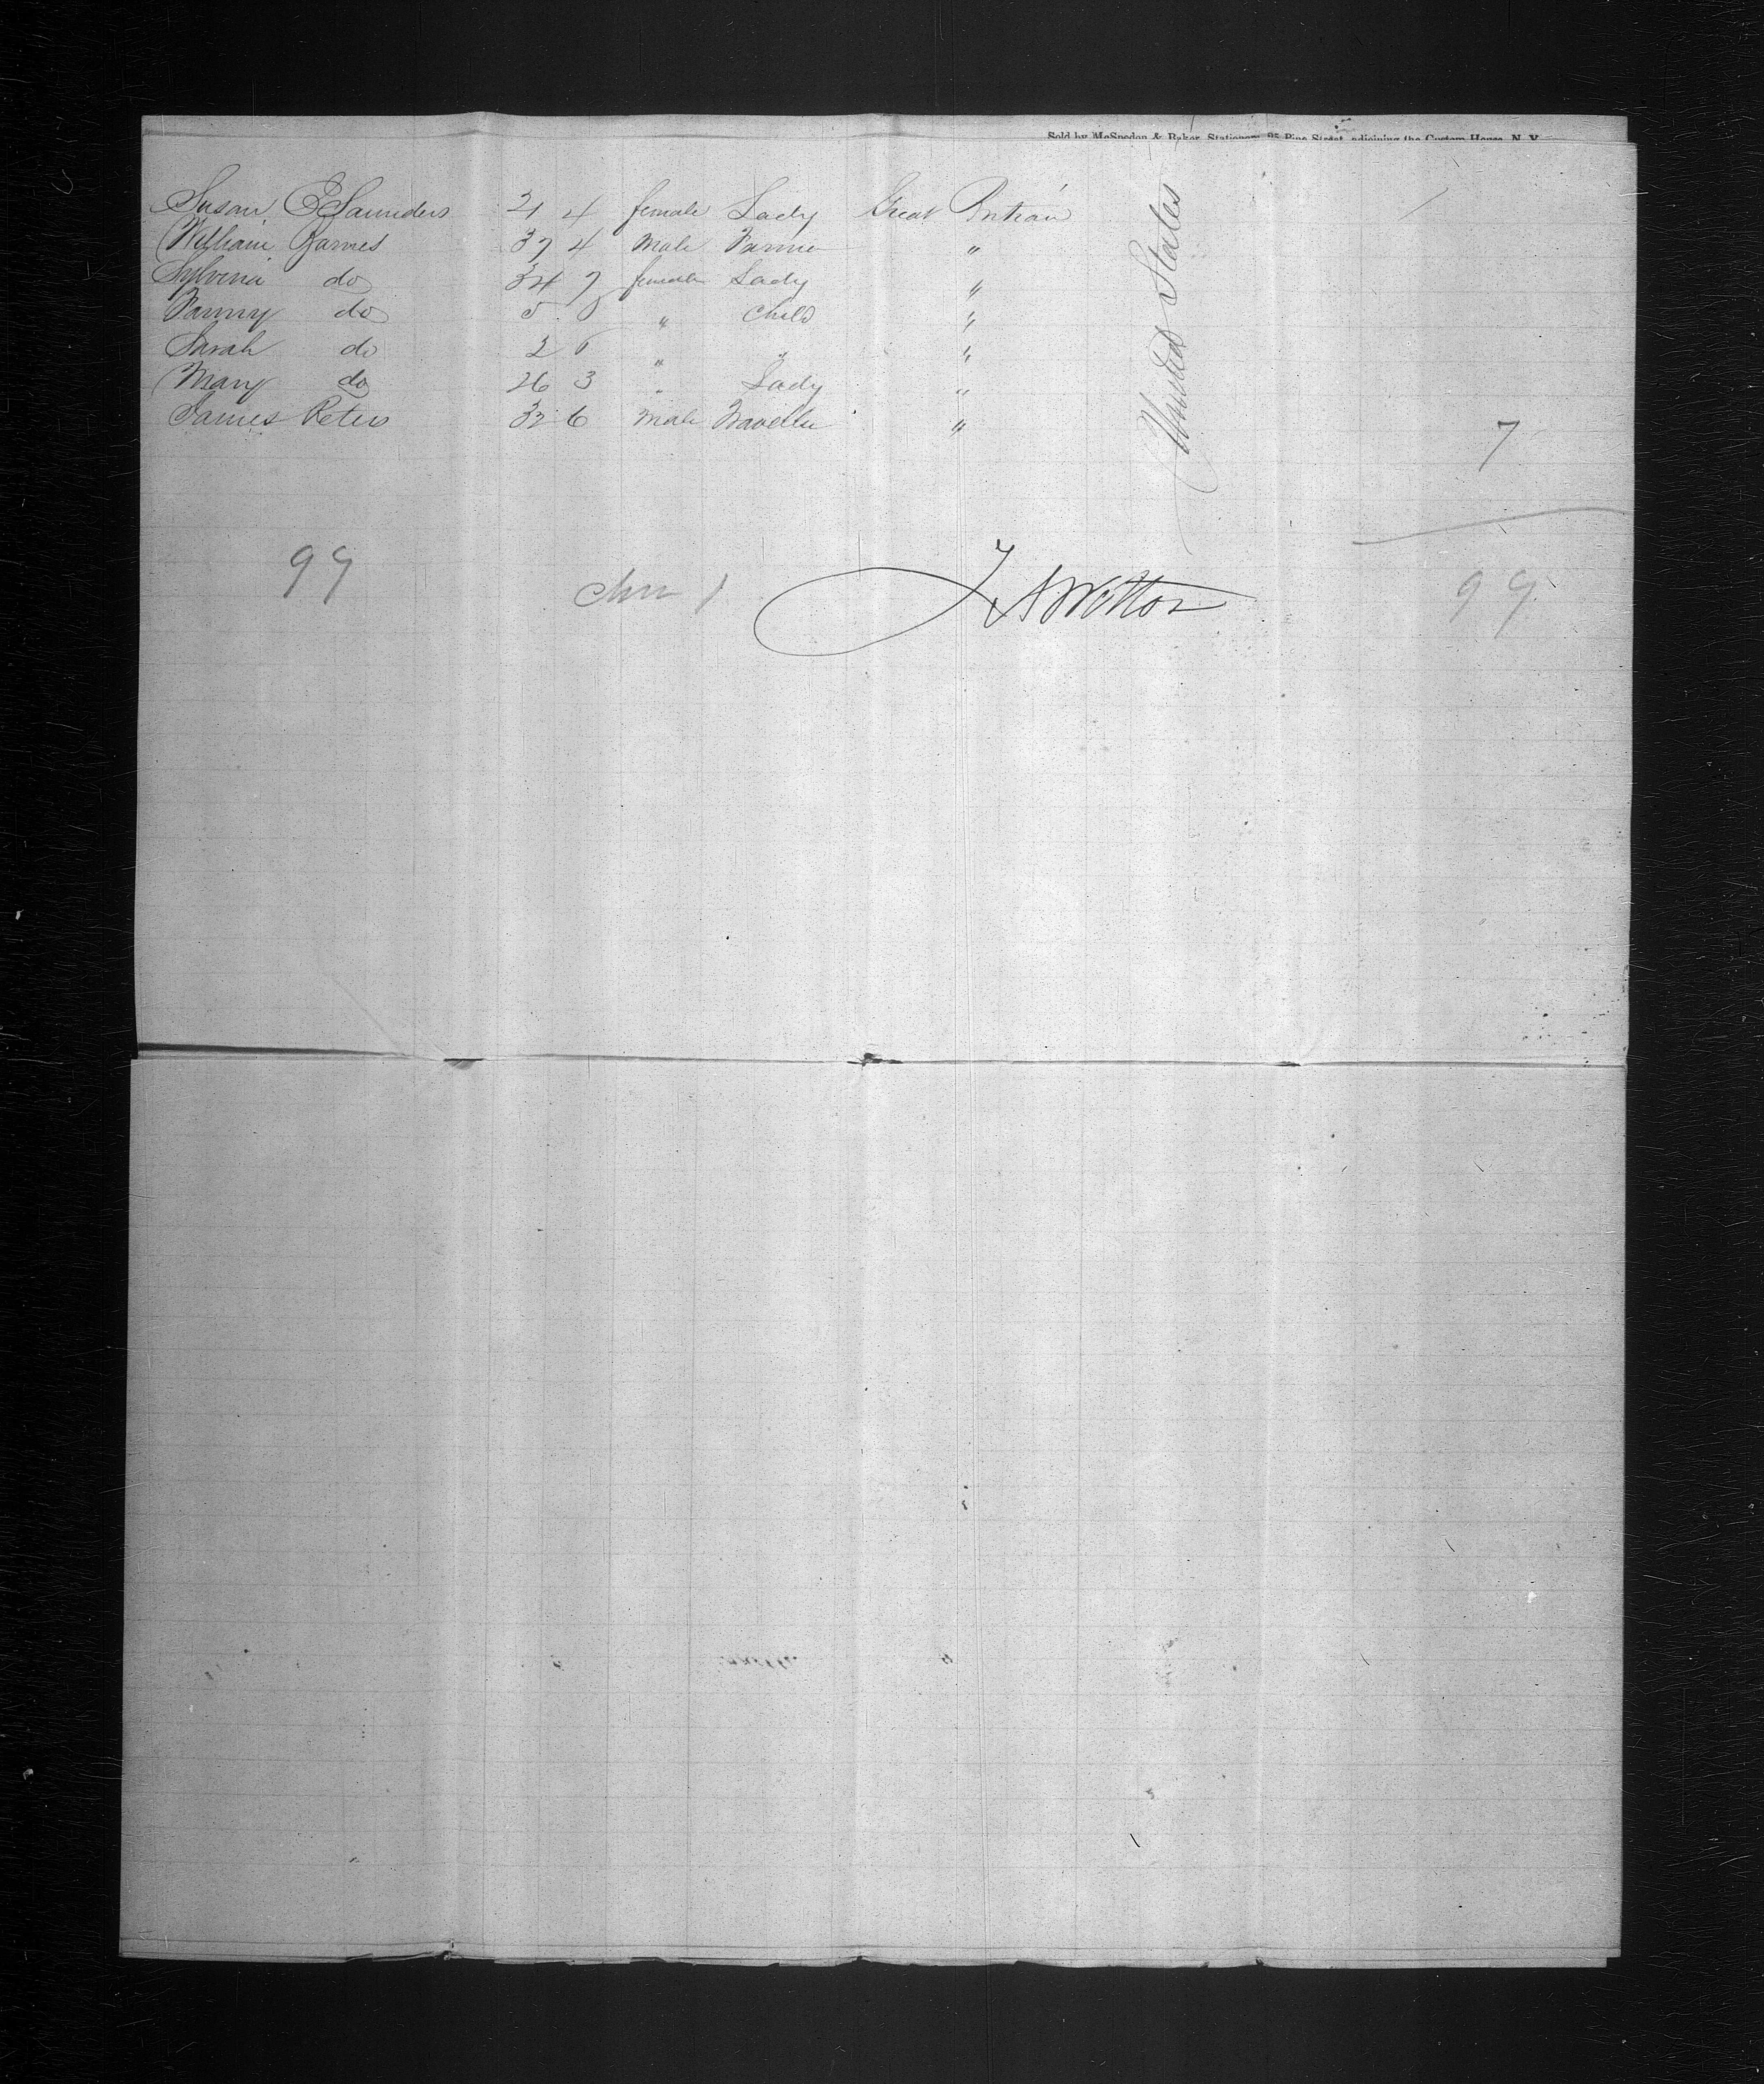 Sold by McSpedon & Baker, Stationers, 25 Pine Street, adjoining the Custom House, N. Y.
Susan E Saunders 21 4 female Lady Great Britain
William Barnes 37 4 Male Farmer "
Sylvenia do 34 7 female Lady "
Fanny do 5 " Child "
Sarah do 2 " " "
Mary do 26 3 " Lady "
James Peters 32 6 Male Traveller "
United States
7
99 1 99